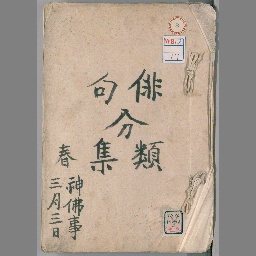 俳句分類集
春
神佛事
三月三日